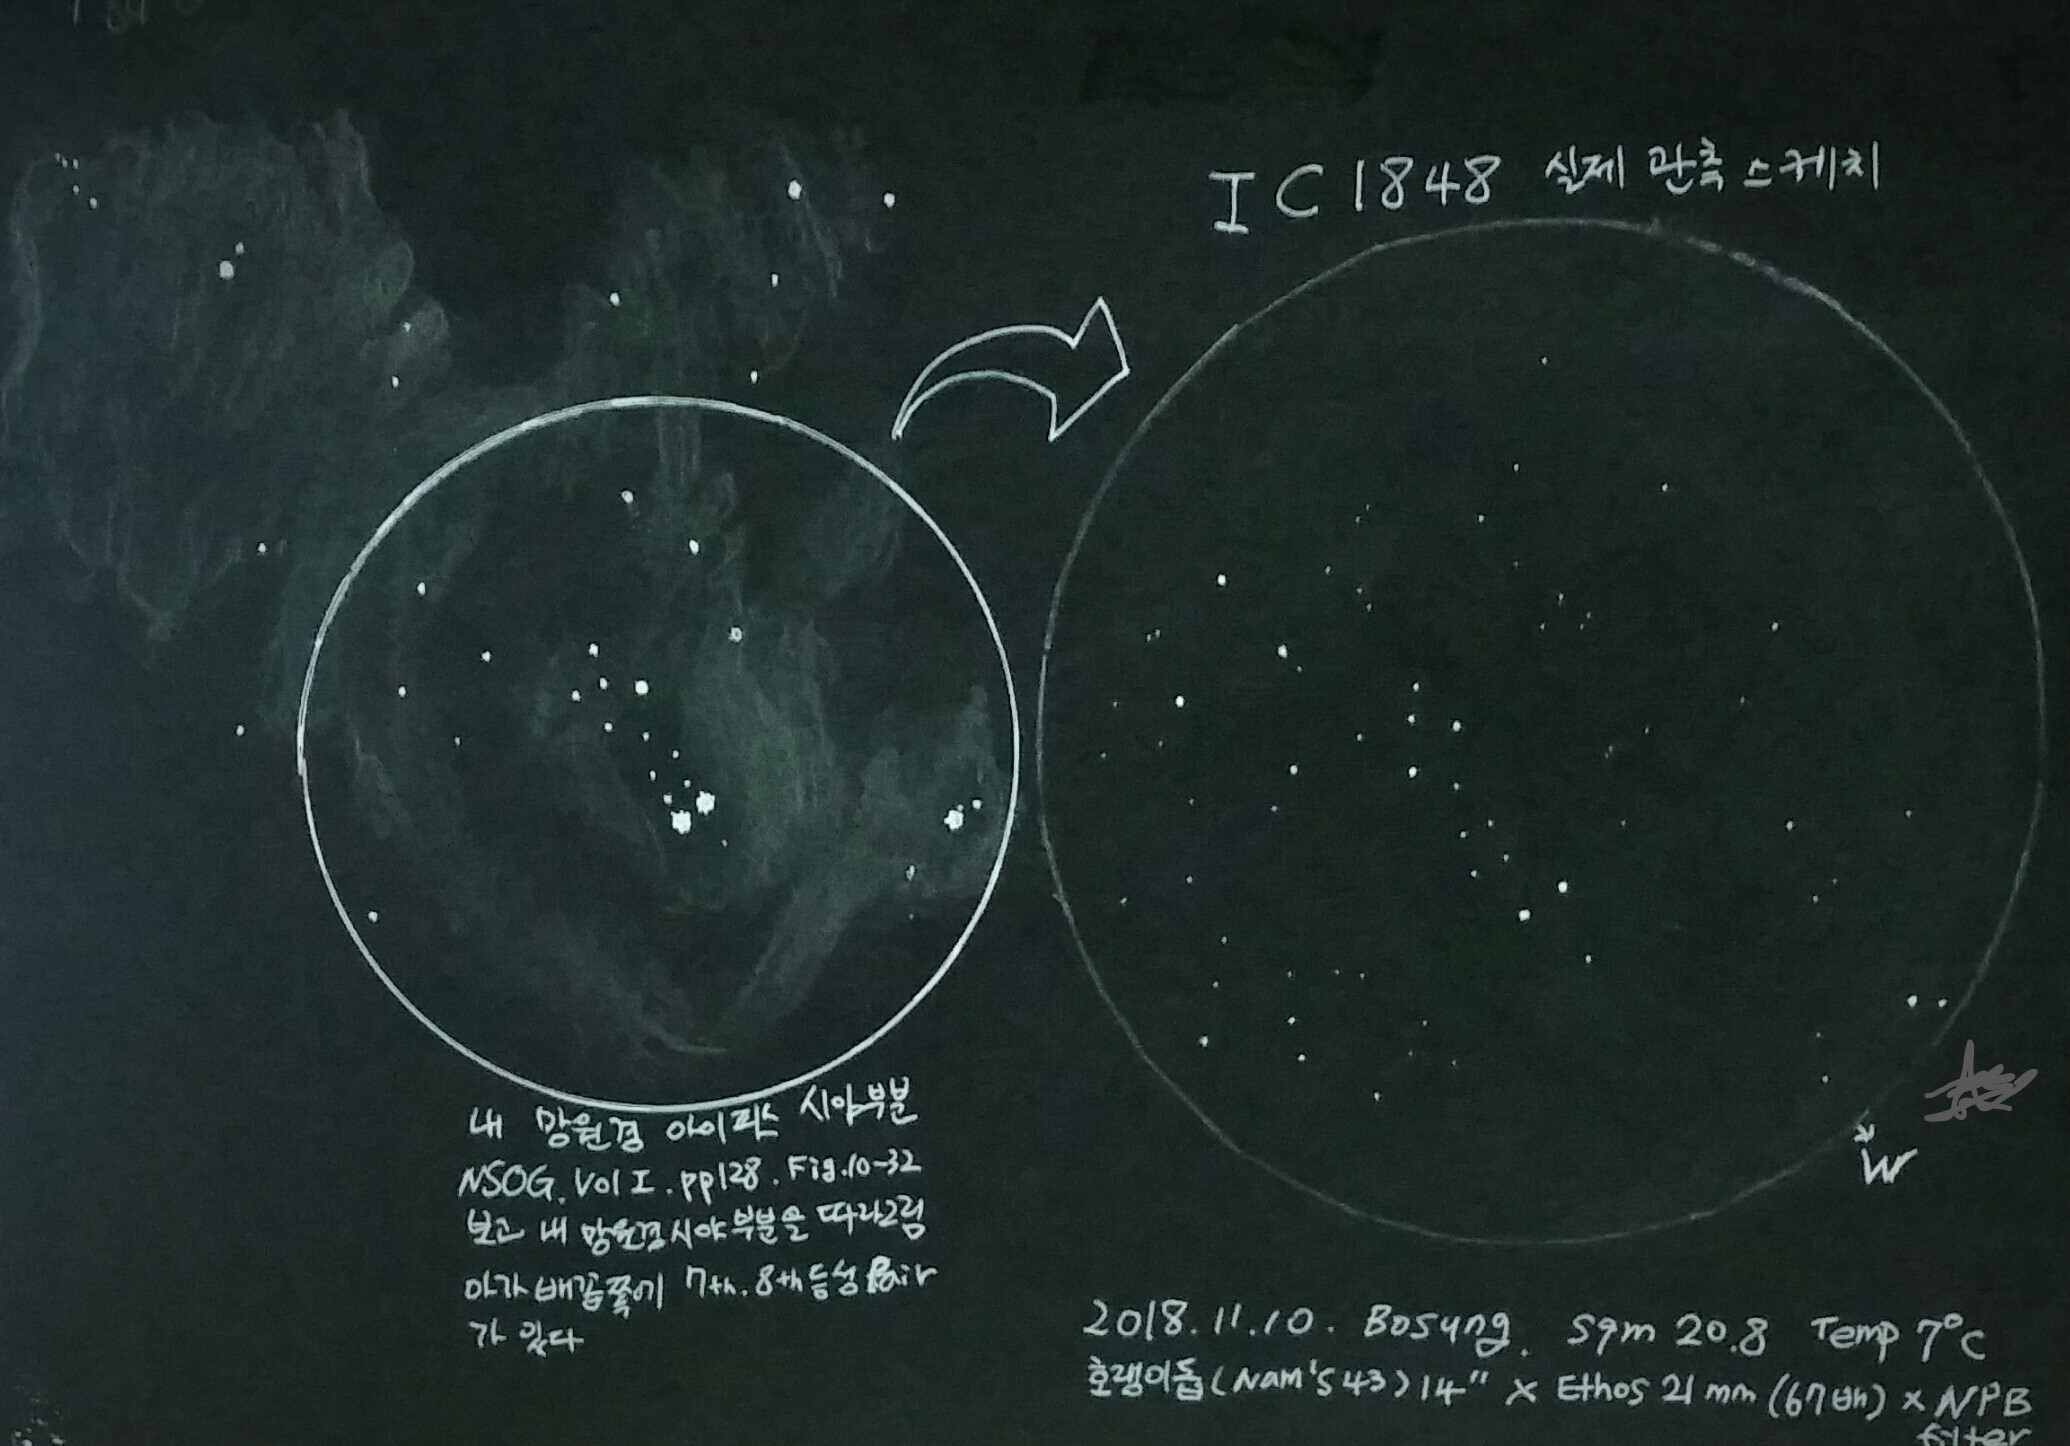 IC 1848 실제 관측 스케치
내 망원경 아이피스 시야부분
NSOG. Vol I. pp128. Fig.10-32
보고 내 망원경시야부분을 따라그림
아가배꼽쪽에 7th. 8th등성 Pair
가 있다
W
2018. 11. 10. Bosung. Sqm 20.8 Temp 7°C
호랭이돕(Nam's 43) 14" x Ethos 21mm (67배) x NPB
filter